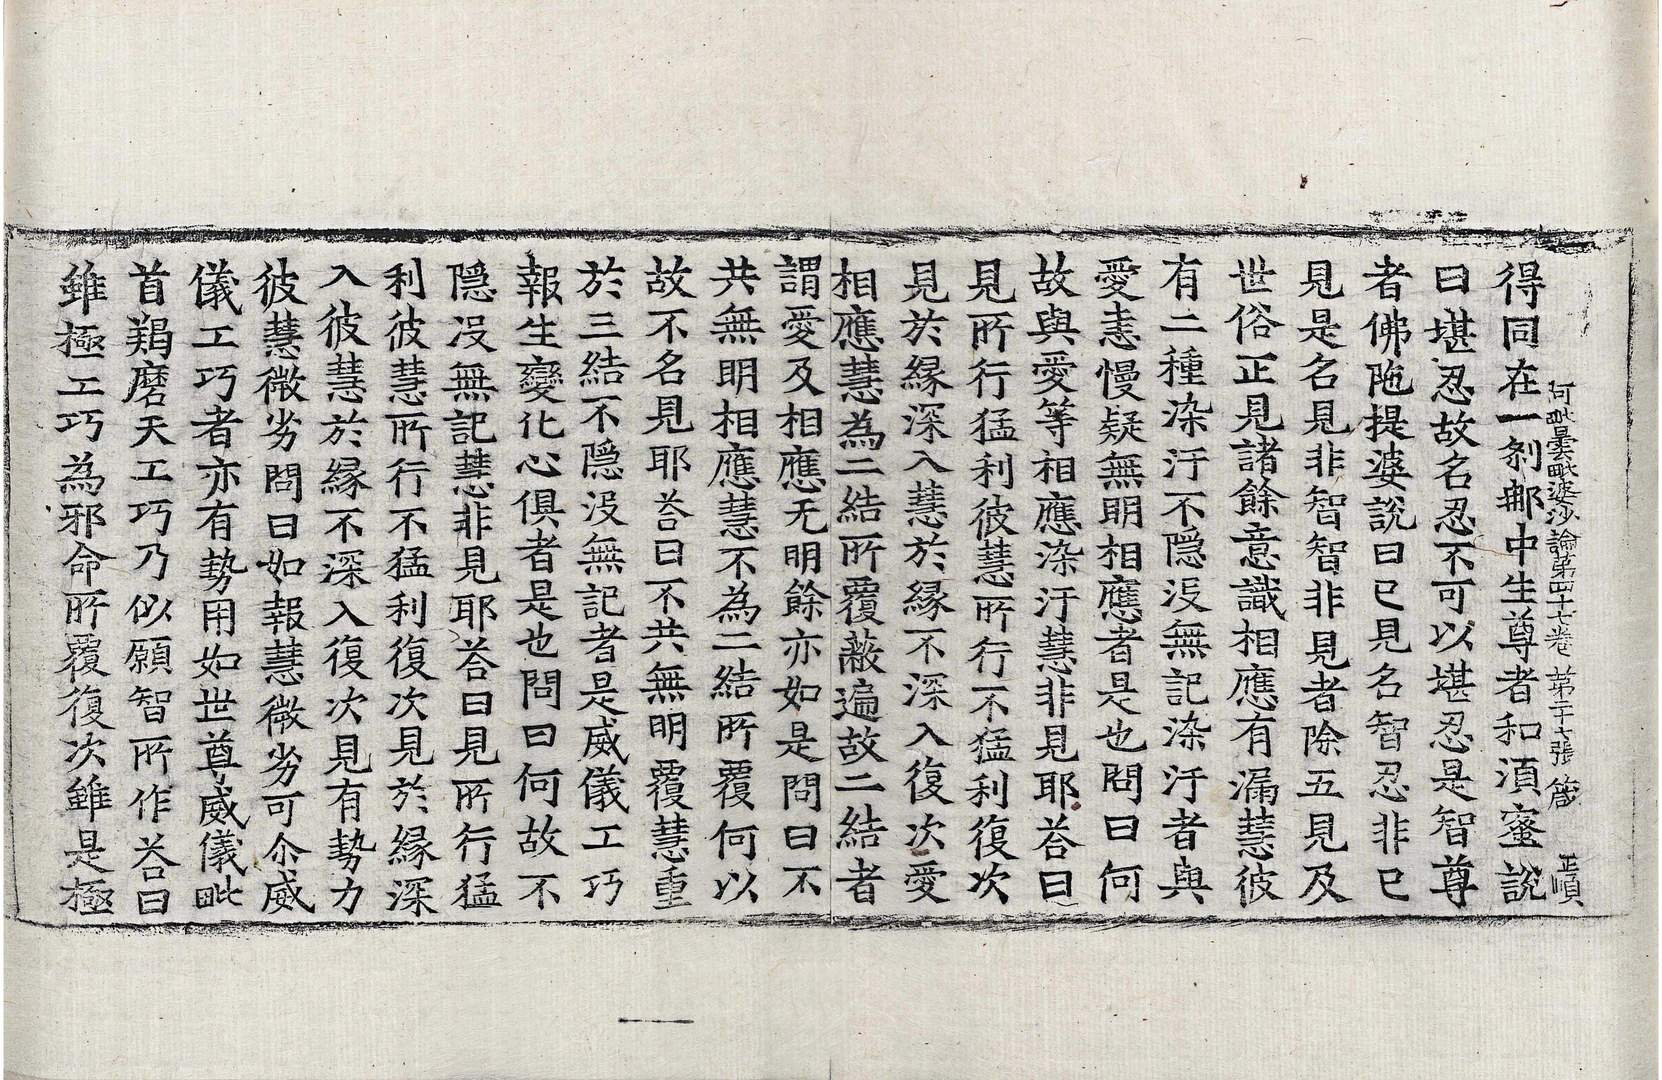 阿毗曇毗婆沙論第四十七卷 第二十七張 箴 正順
得同在一刹𨙻中生尊者和湏蜜說
曰堪忍故名忍不可以堪忍是智尊
者佛陁提婆說曰已見名智忍非已
見是名見非智智非見者除五見及
世俗正見諸餘意識相應有漏慧彼
有二種染汙不隠没無記染汙者與
愛恚慢疑無明相應者是也問曰何
故與愛等相應染汙慧非見耶荅曰
見所行猛利彼慧所行不猛利復次
見於縁深入慧於縁不深入復次愛
相應慧為二結所覆蔽遍故二結者
謂愛及相應无明餘亦如是問曰不
共無明相應慧不為二結所覆何以
故不名見耶荅曰不共無明覆慧重
於三結不隠没無記者是威儀工巧
報生變化心俱者是也問曰何故不
隠没無記慧非見耶荅曰見所行猛
利彼慧所行不猛利復次見於縁深
入彼慧於縁不深入復次見有勢力
彼慧微劣問曰如報慧微劣可尒威
儀工巧者亦有勢用如世尊威儀毗
首羯磨天工巧乃似願智所作荅曰
雖極工巧為邪命所覆復次雖是極